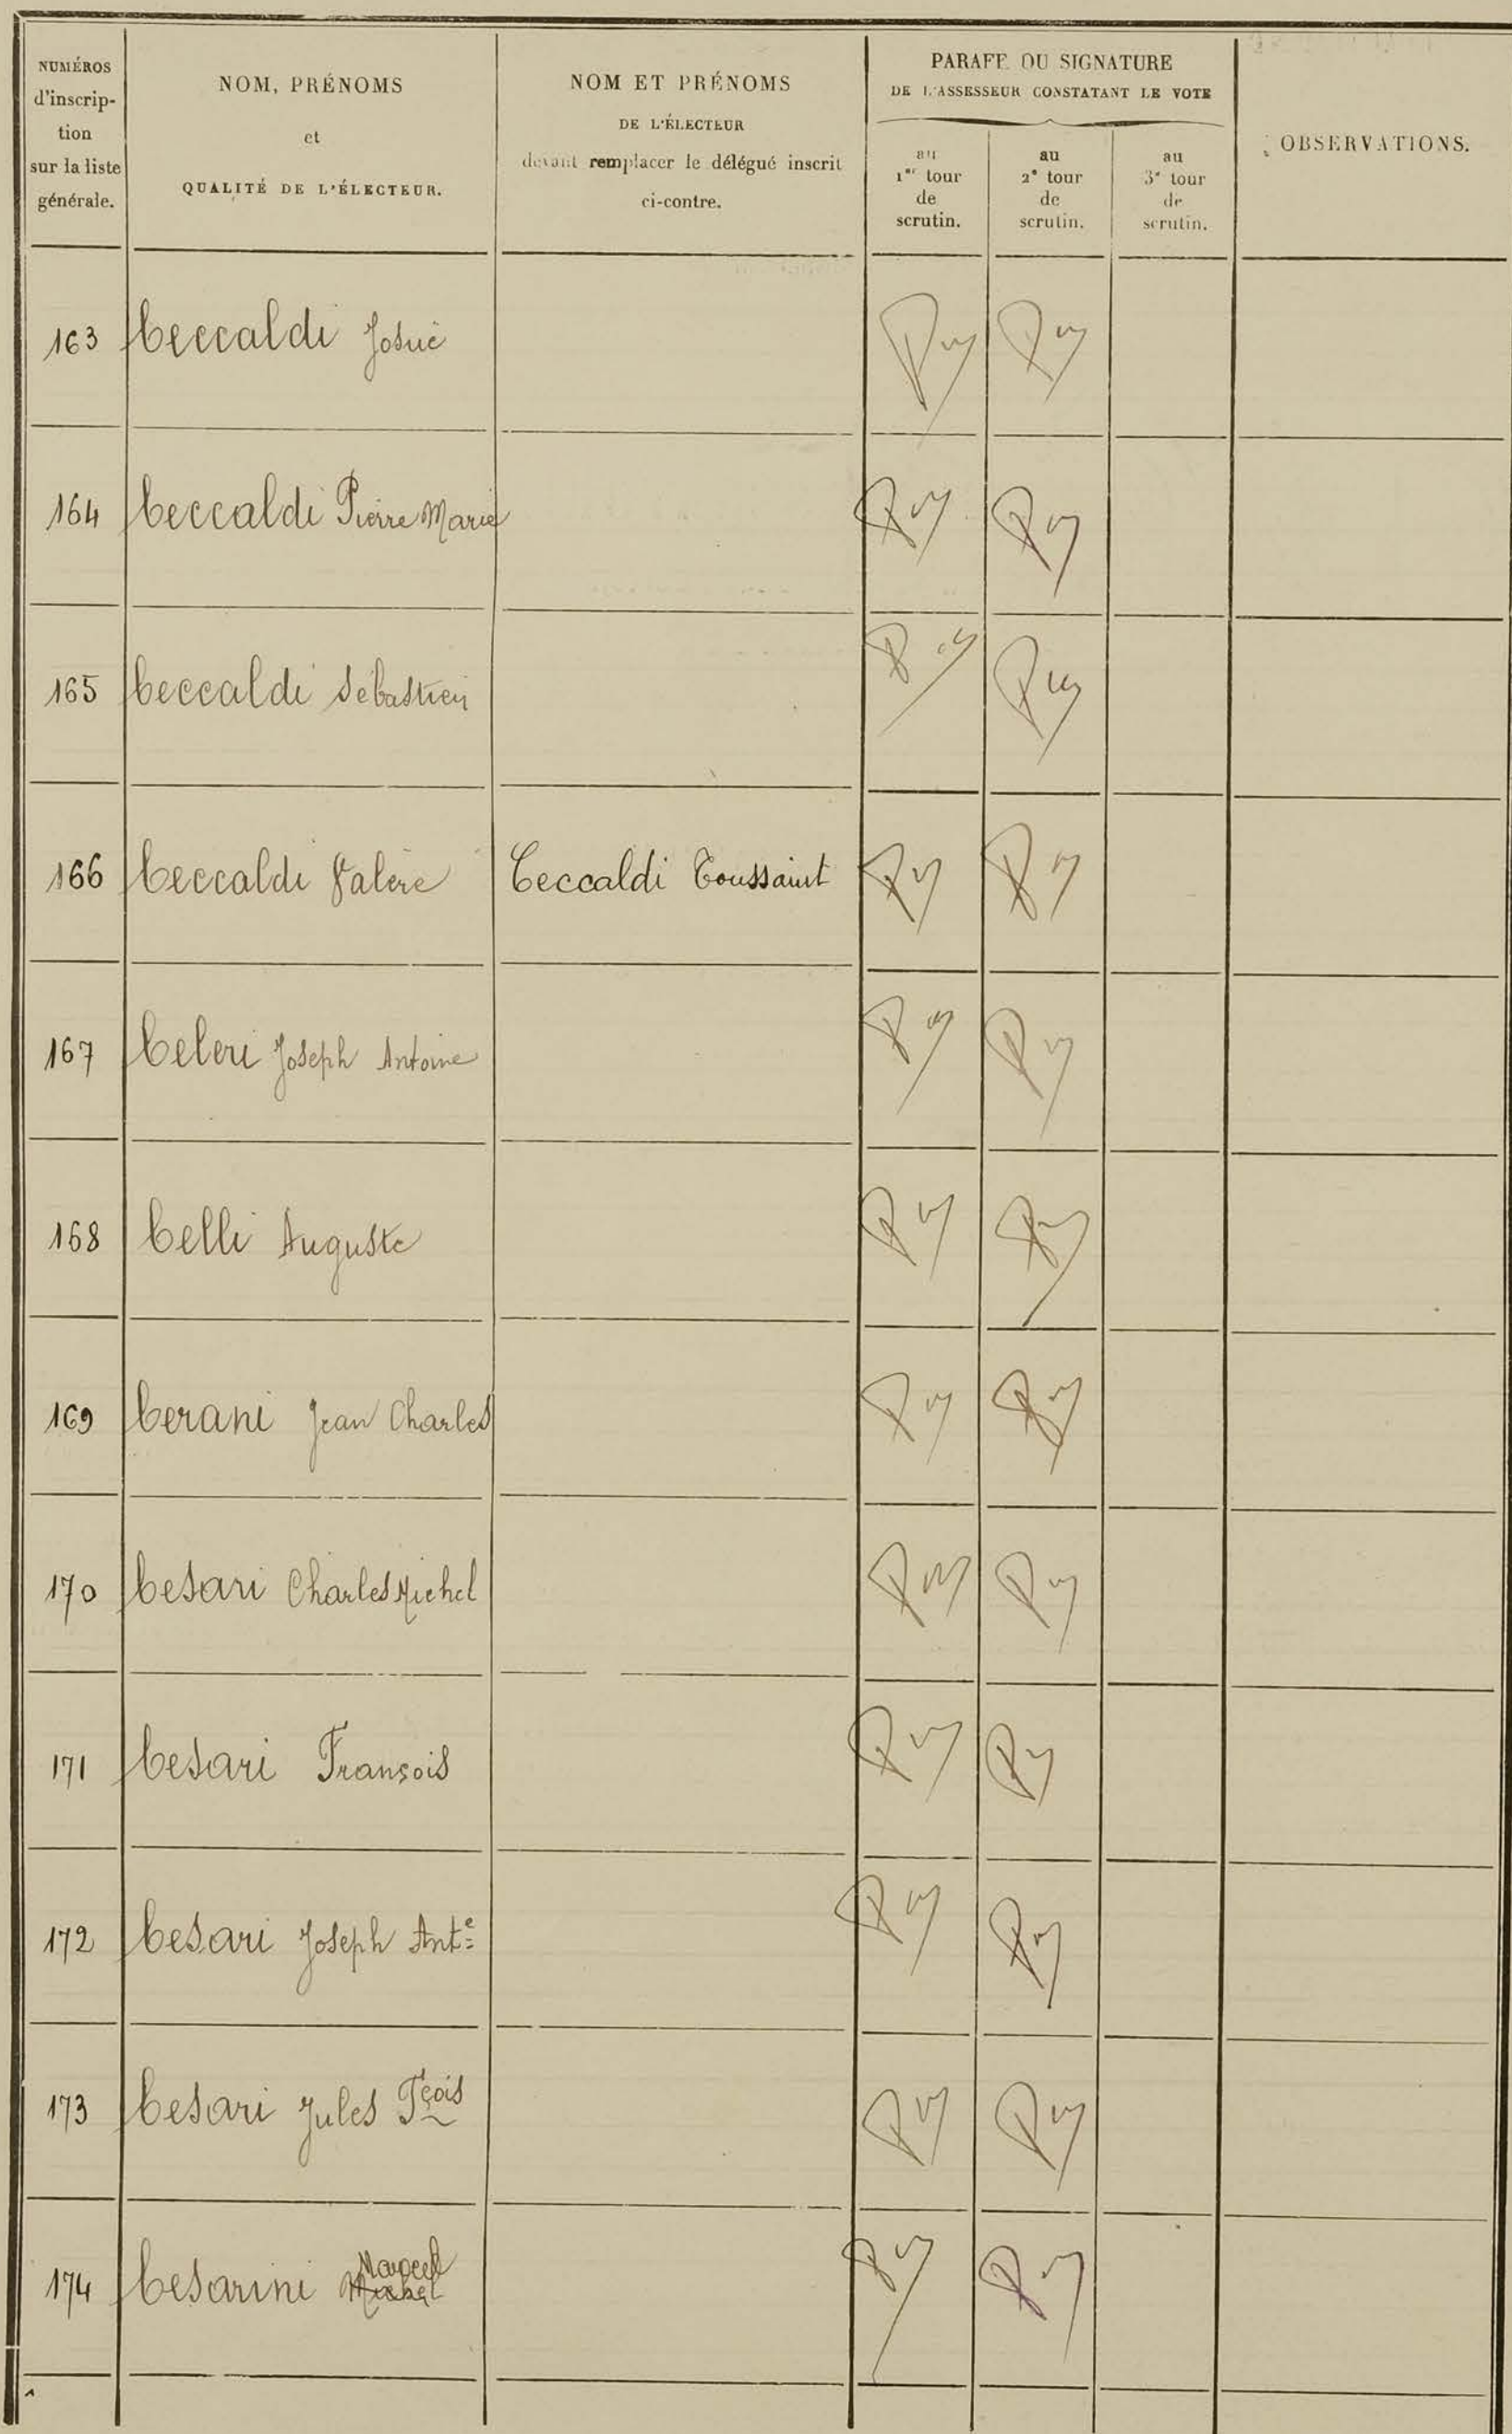 NUMÉROS
d'inscrip-
tion
sur la liste
générale.
NOM, PRÉNOMS
et
QUALITÉ DE L'ÉLECTEUR.
NOM ET PRÉNOMS
DE L'ÉLECTEUR
devant remplacer le délégué inscrit
ci-contre.
PARAFE OU SIGNATURE
DE L'ASSESSEUR CONSTATANT LE VOTE
au
1er tour
de
scrutin.
au
2e tour
de
scrutin.
au
3e tour
de
scrutin.
OBSERVATIONS.
163 Ceccaldi Josué
164 Ceccaldi Pierre Marie
165 Ceccaldi Sébastien
166 Ceccaldi Valère Ceccaldi Toussaint
167 Celeri Joseph Antoine
168 Celli Auguste
169 Cerani Jean Charles
170 Cesari Charles Michel
171 Cesari François
172 Cesari Joseph Ante
173 Cesari Jules Fçois
174 Cesarini Marcel